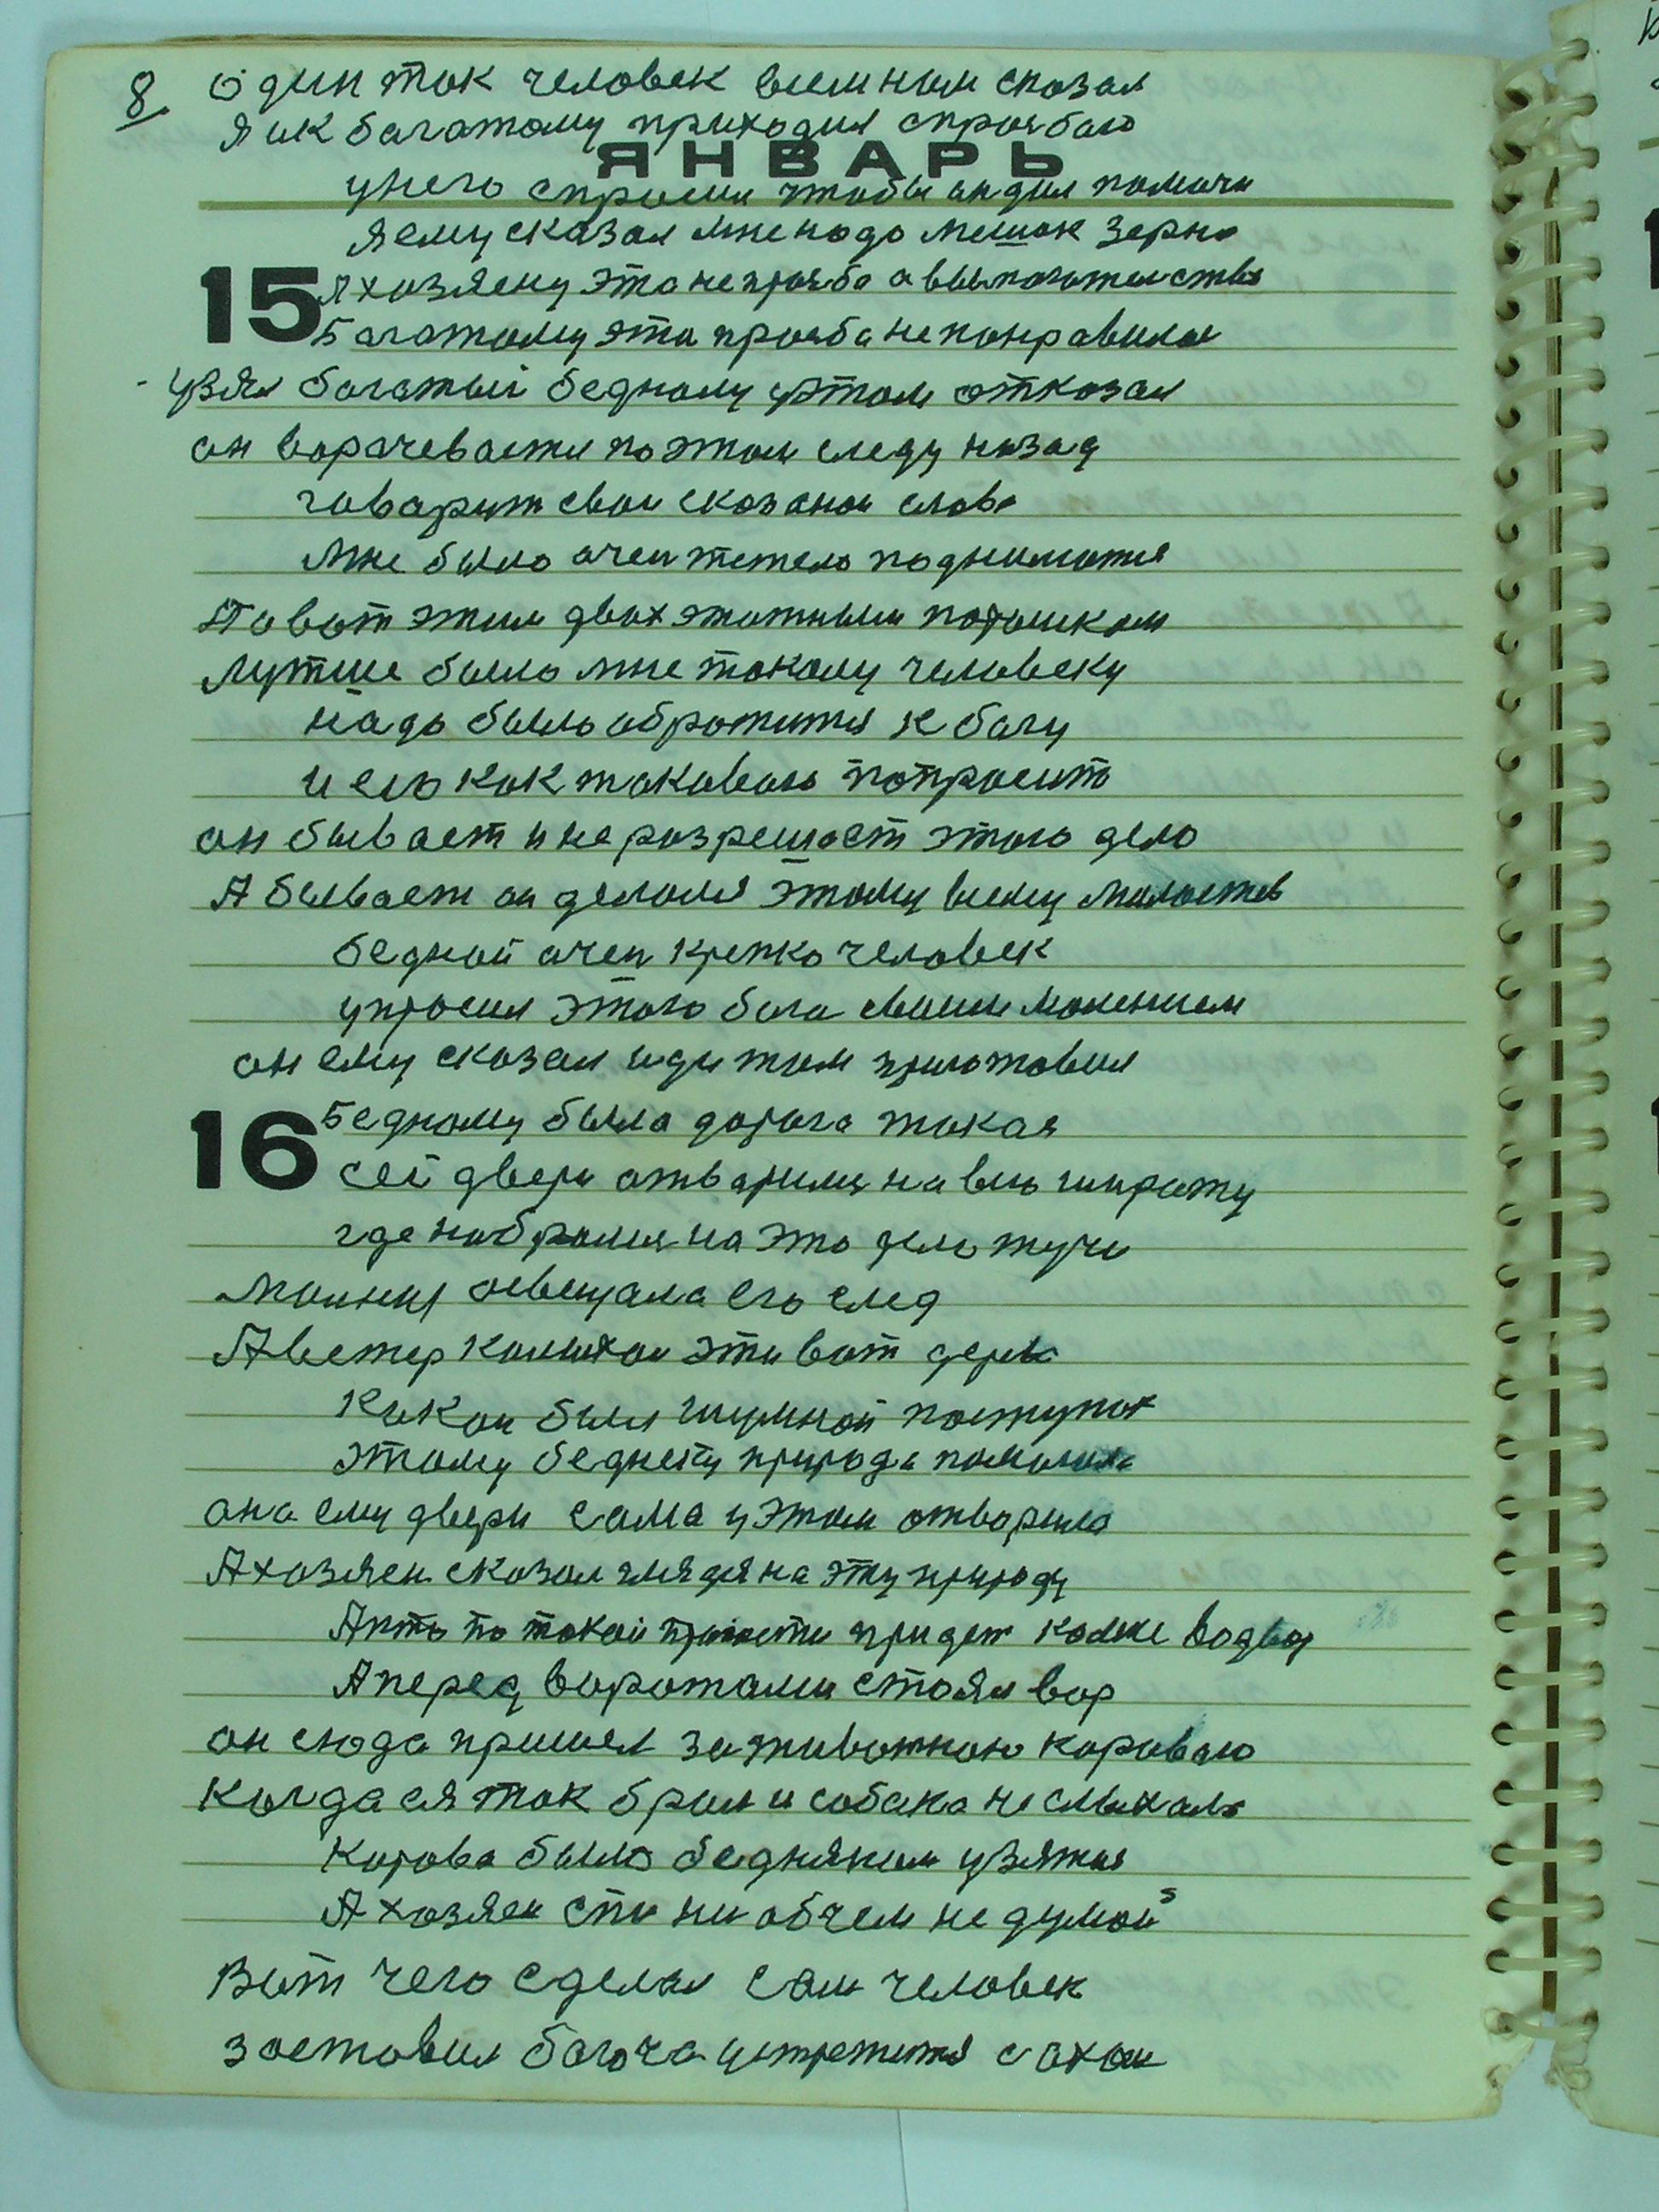 8 один так человек всем ним сказал
я ик багатому приходил спрозьбаю
ЯНВАРЬ
унего спросил чтобы он дал помочи
я ему сказал мне надо мешок зерна
15 Я хозяену это не прозьба а
Багатому эта прозьба непонравилас
узял багатый бедному уэтом отказал
он ворачеваетя поэтом следу назад
говарит свои сказаноя слова
Мне было очен тежело подниматия
По вот этим двох этажным порошкам
Лутше было мне такому человеку
надо было обротится к богу
и его как такового попросить
он бывает и не разрешает этого дело
А бывает он делался этому всему милостев
бедной очен крепко человек
упросил этого бога своим молением
он ему сказал иди там приготовил
16 Бедному была дорога такая
сей двери отварилис на всю шырату
где набрались на это дело тучи
Молния освещала его след
А ветер колыхал эти вот
Какой был шумной поступок
этому беднеку природа помогла
она ему двери сама уэтом отворила
А хозяен сказал глядя на эту природу
А кто по такой придет комне водвор
А перед воротами стоял вор
он сюда пришел за животною коровою
Когда ея так брал и собака не слыхала
Корова было бедняким узятая
А хозяен спи ни обчем не думай
Вот чего сделал сам человек
заставил богача устретится с